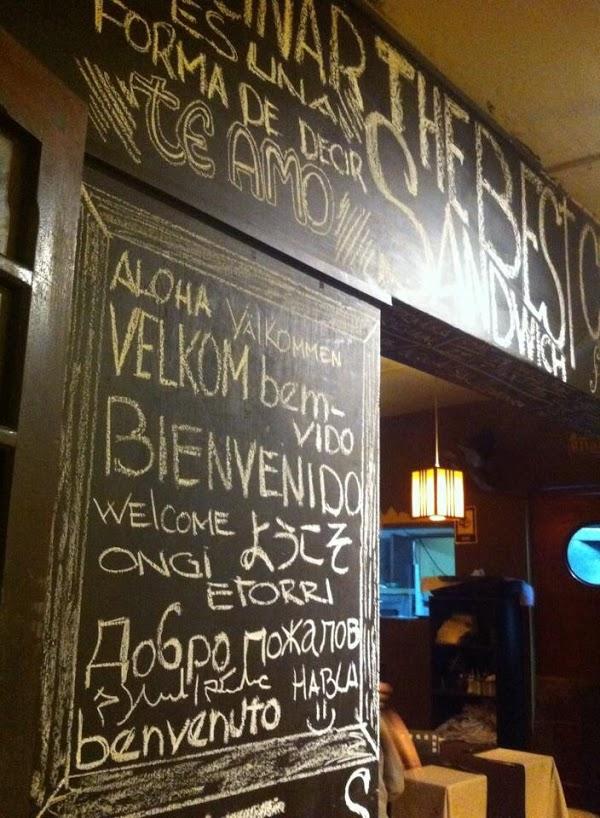 ES UNA
FORMA DE DECIR
TE AMO
THE BEST
SANDWICH
ALOHA VALKOMMEN
VELKOM bem-
VIDO
BIENVENIDO
WELCOME ようこそ
ONGI
ETORRI
Добро пожалов
HABLA
benvenuto